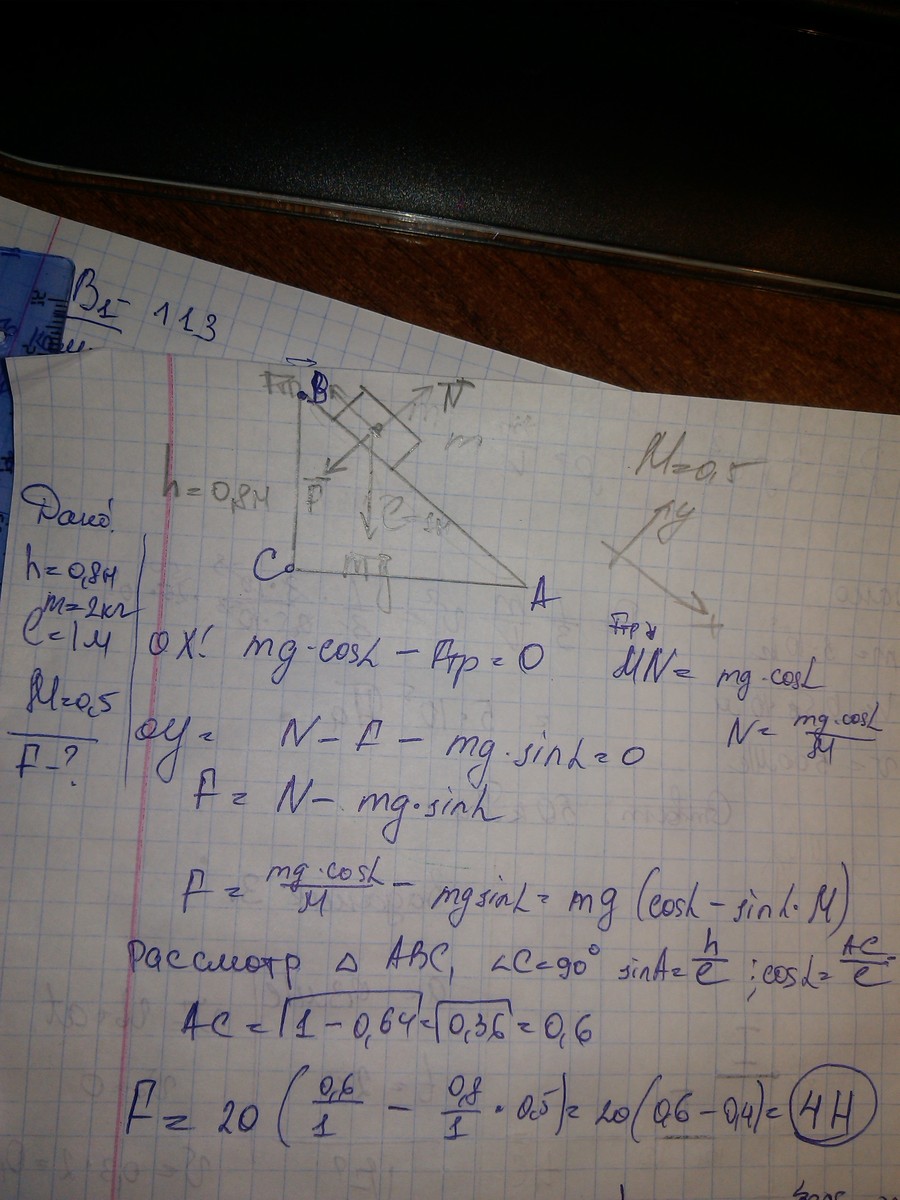 B1- 113
Fтр B N
m
M=0,5
h = 0,8н
F
y
C
mg
A
x
Дано:
h=0,8н
m=2кг
l=1м
M=0,5
F-?
OX: mg·cosL - Fтр = 0
Fтр
MN = mg·cosL
N = mg·cosL / M
OY = N - F - mg·sinL = 0
F = N - mg·sinL
F = mg·cosL / M - mgsinL = mg (cosL - sinL·M)
Рассмотр △ ABC, ∠C=90° sinA = h/l ; cosL = AC/l =
AC = √1-0,64 = √0,36 = 0,6
F = 20 (0,6/1 - 0,8/1 · 0,5) = 20(0,6-0,4) = 4Н